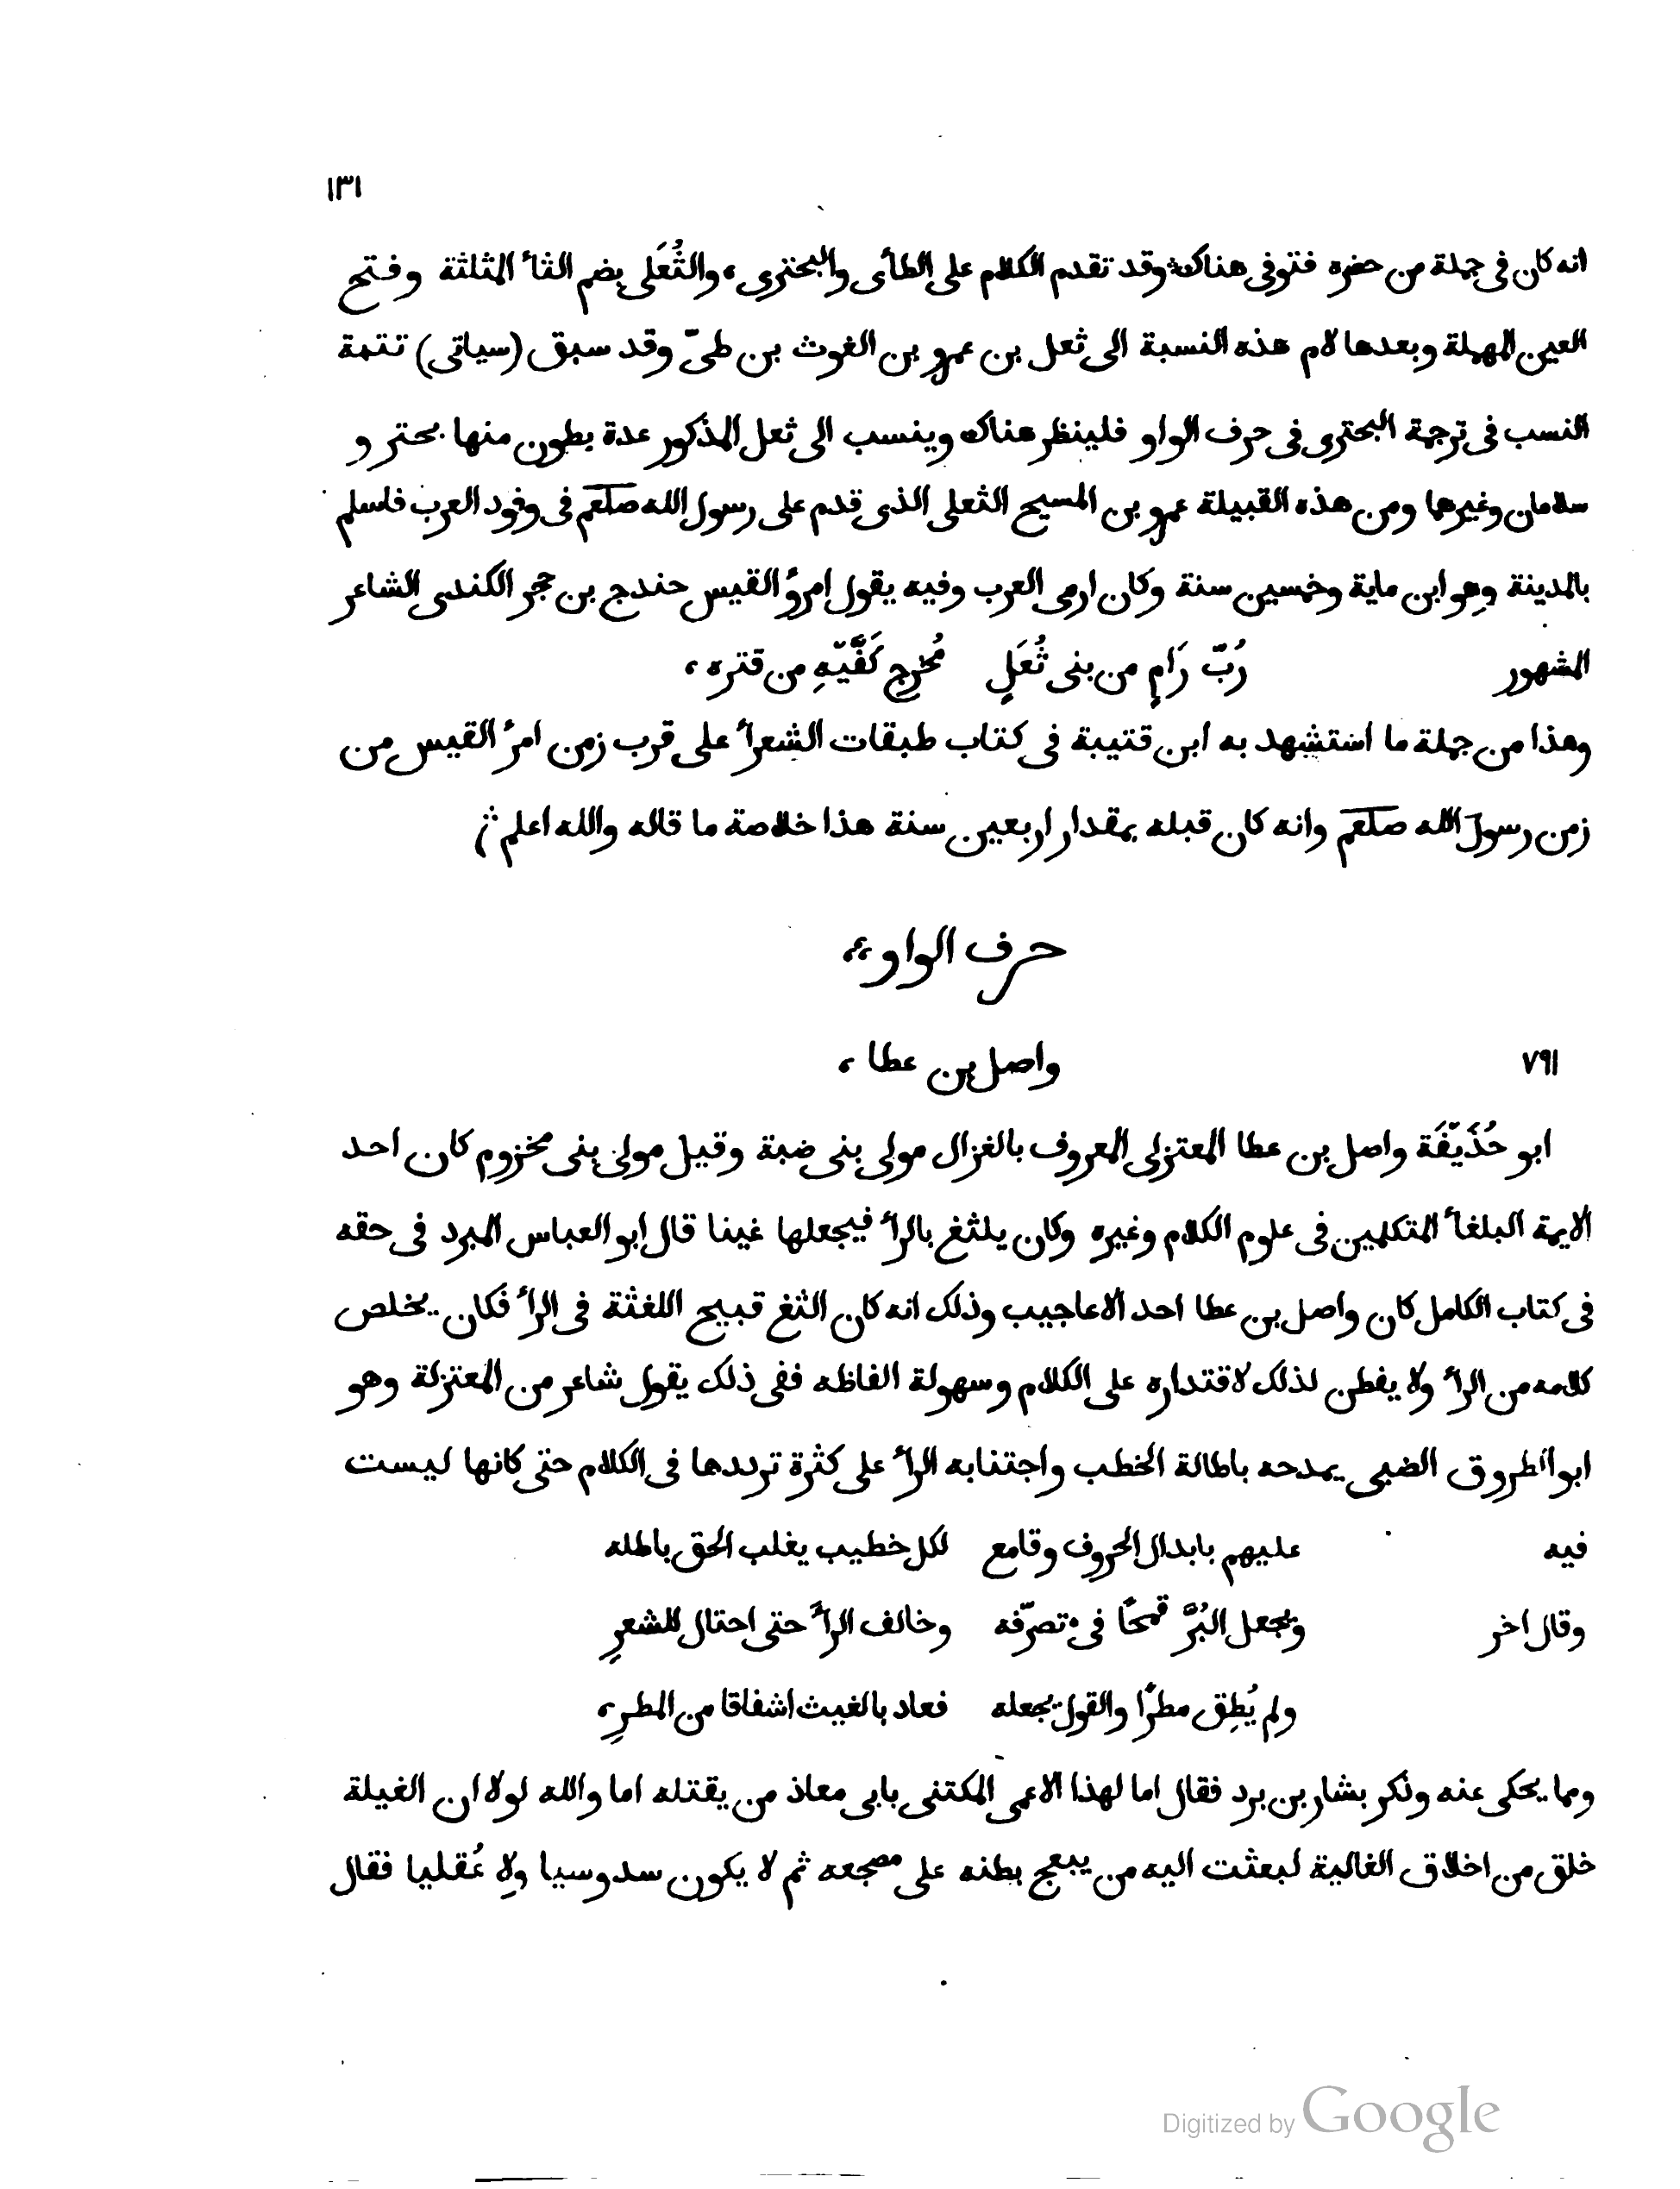 ١٣١
انه كان فى جملة من حضره فتوفى هناك، وقد تقدم الكلام على الطأى والبحترى، والثُعَلى بضم الثأ المثلثة وفتح
العين المهملة وبعدها لام هذه النسبة الى ثعل بن عمرو بن الغوث بن طىّ وقد سبق (سياتى) تتمة
النسب فى ترجمة البحترى فى حرف الواو فلينظر هناك وينسب الى ثعل المذكور عدة بطون منها بحتر و
سلامان وغيرهما ومن هذه القبيلة عمرو بن المسيح الثعلى الذى قدم على رسول الله صلعم فى وفود العرب فاسلم
بالمدينة وهو ابن ماية وخمسين سنة وكان ارمى العرب وفيه يقول امرؤ القيس حندج بن حجر الكندى الشاعر
المشهور رُبّ رَامٍ من بنى ثُعَلٍ مُخرِج كَفَّيّهِ من قتره،
وهذا من جملة ما استشهد به ابن قتيبة فى كتاب طبقات الشعرأ على قرب زمن امرُ القيس من
زمن رسول الله صلعم وانه كان قبله بمقدار اربعين سنة هذا خلاصة ما قاله والله اعلم
حرف الواو،،
٧٩١
واصل بن عطا،
ابو حُذَيّفَة واصل بن عطا المعتزلى المعروف بالغزال مولى بنى ضبة وقيل مولى بنى مخزوم كان احد
الايمة البلغأ المتكلمين فى علوم الكلام وغيره وكان يلثغ بالرأ فيجعلها غينا قال ابو العباس المبرد فى حقه
فى كتاب الكامل كان واصل بن عطا احد الاعاجيب وذلك انه كان الثغ قبيح اللغثة فى الرأ فكان يخلص
كلامه من الرأ ولا يفطن لذلك لاقتداره على الكلام وسهولة الفاظه ففى ذلك يقول شاعر من المعتزلة وهو
ابو الطروق الضبى يمدحه باطالة الخطب واجتنابه الرأ على كثرة ترددها فى الكلام حتى كانها ليست
فيه عليهم بابدال الحروف وقامع لكل خطيب يغلب الحق باطله
وقال اخر ويجعل البُرَّ قمحًا فى تصرّفه وخالف الرأ حتى احتال للشعرِ
ولم يُطِق مطرًا والقول يجعله فعاد بالغيث اشفاقا من المطرِ،
ومما يحكى عنه وذكر بشار بن برد فقال اما لهذا الاعمى المكتنى بابى معاذ من يقتله اما والله لولا ان الغيلة
خلق من اخلاق الغالية لبعثت اليه من يبعج بطنه على مضجعه ثم لا يكون سدوسيا ولا عُقليا فقال
Digitized by Google